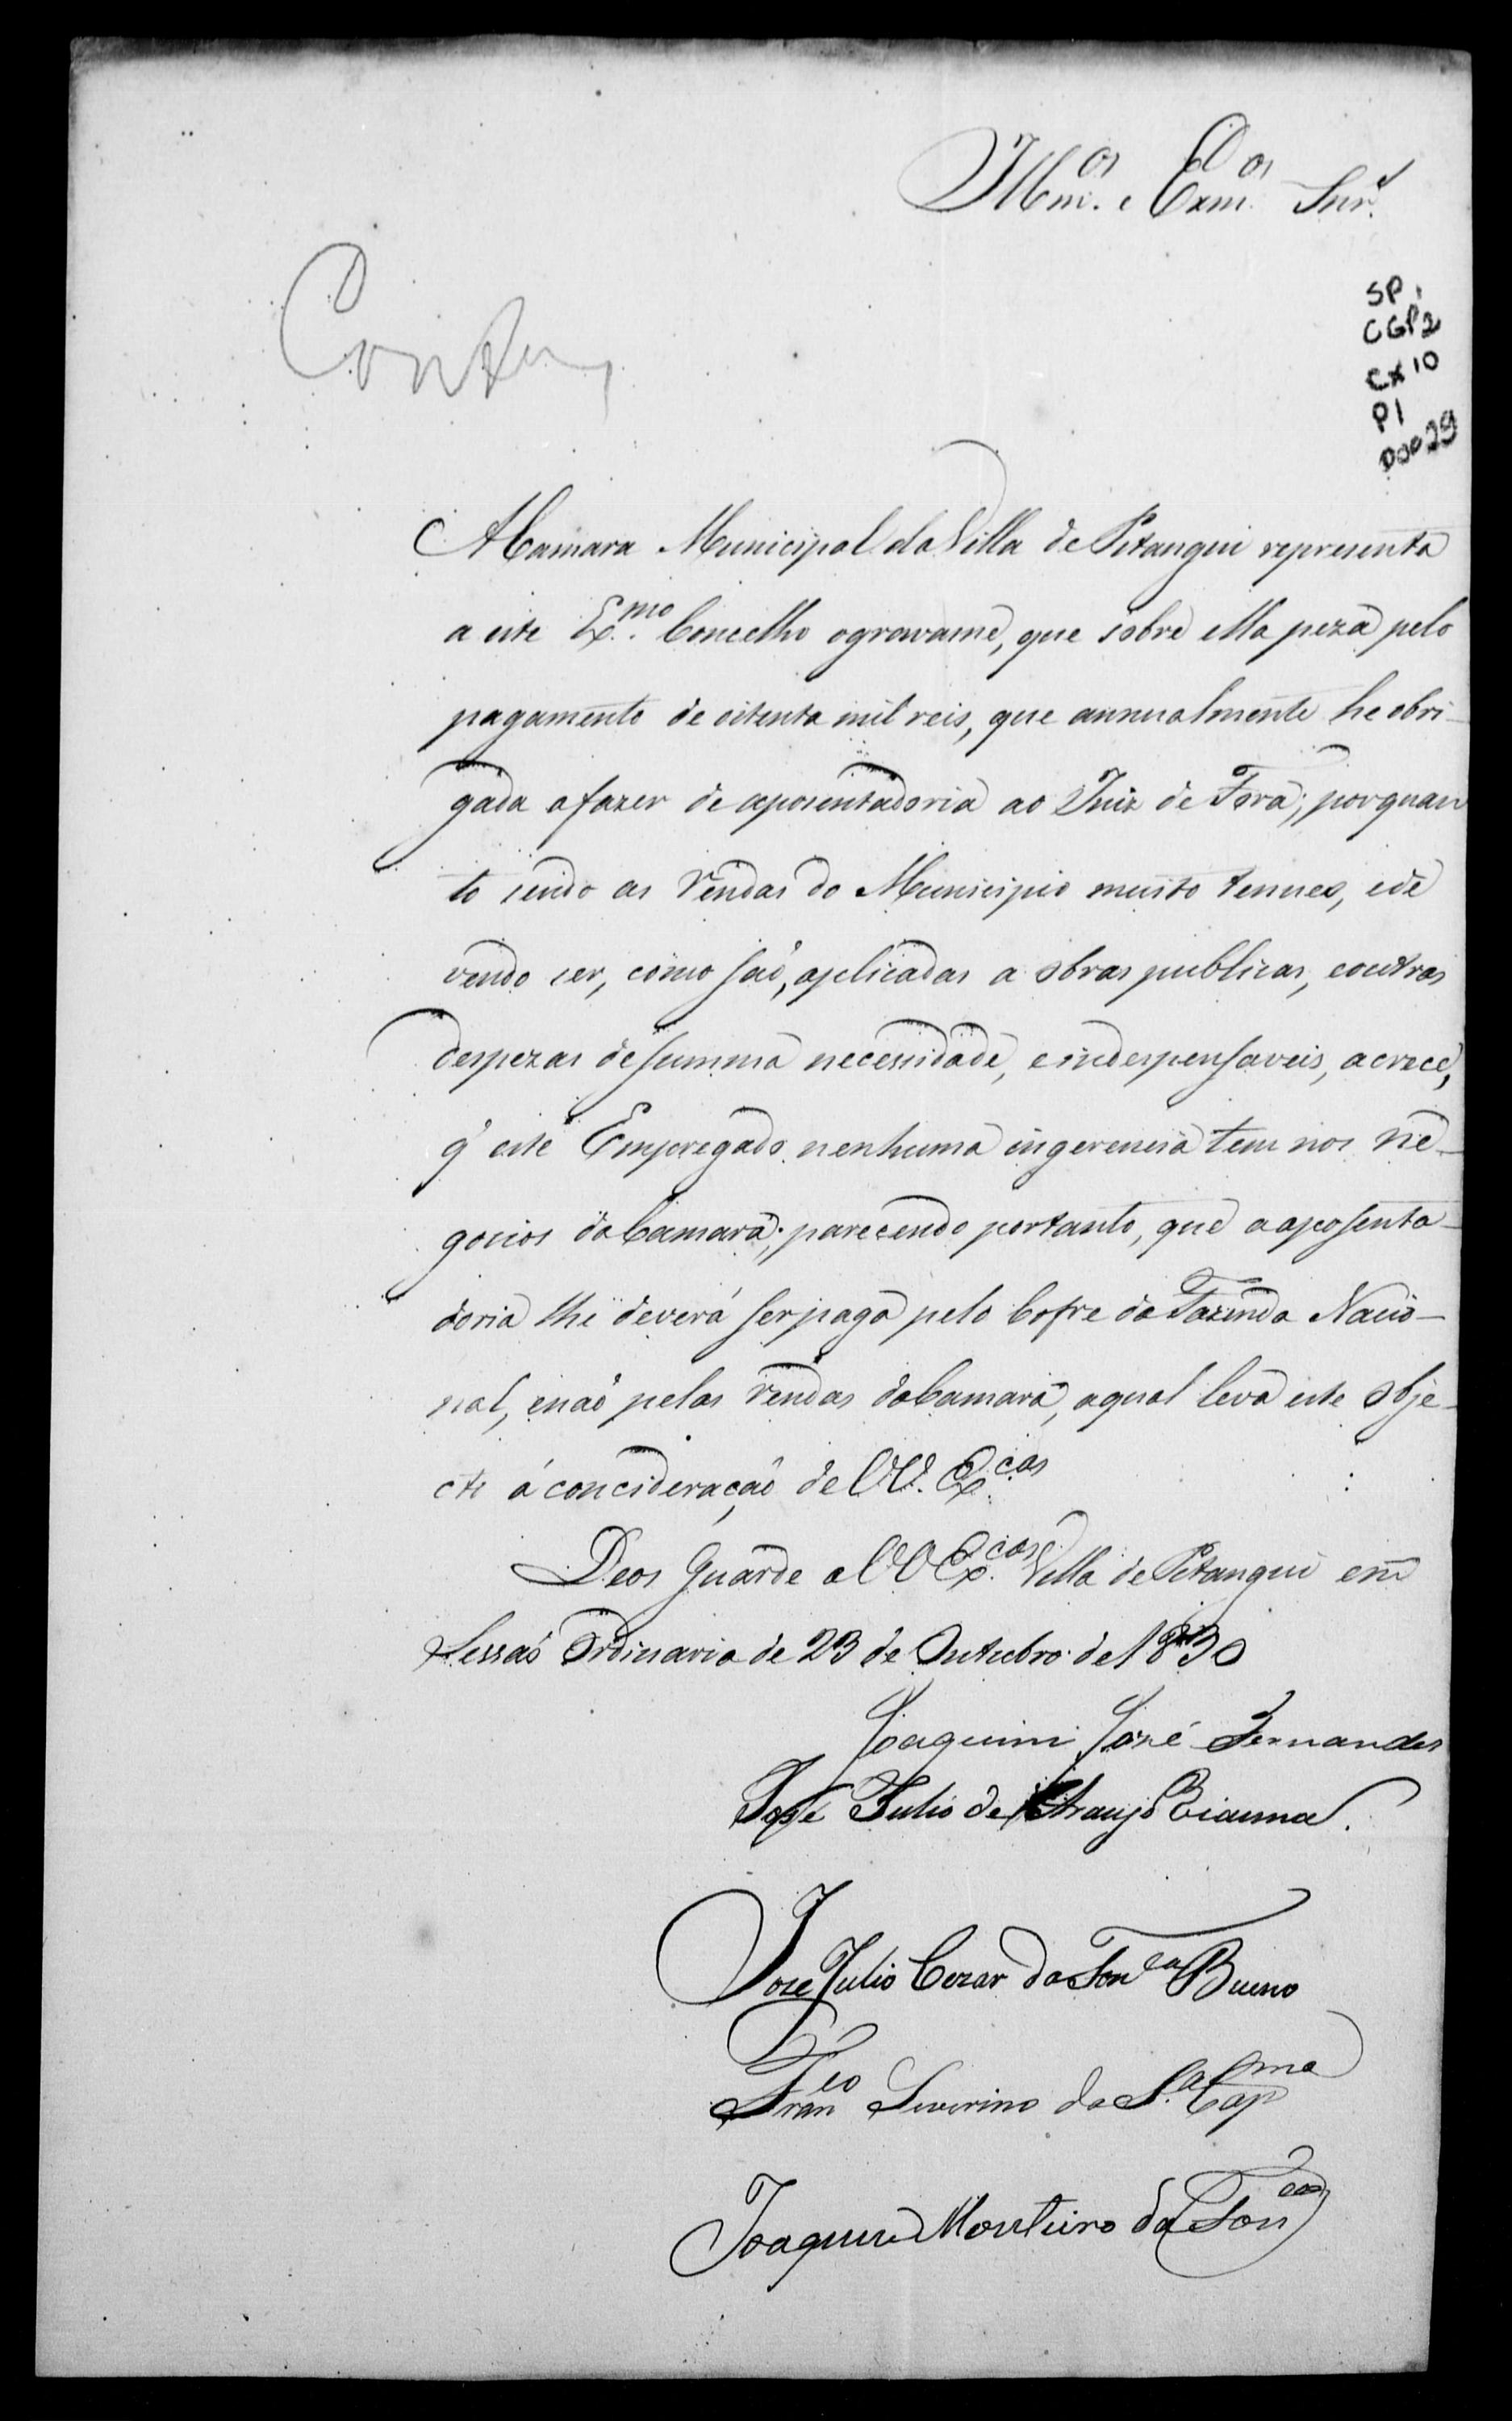 Illm.os e Exm.os Snr.s
SP
CGP2
CX10
P1
D0029
A Camara Municipal da Villa de Pitangui representa
a este Ex.mo Concelho o gravame, que sobre ella peza pelo
pagamento de oitenta mil reis, que annualmente he obri-
gada a fazer de aposentadoria ao Juiz de Fora; porquan
to sendo as rendas do Municipio muito tenues, e de
vendo ser, como saõ, aplicadas a obras publicas, e outras
despezas de summa necessidade, e indespensaveis, acrece,
q' este Empregado nenhuma ingerencia tem nos ne-
gocios da Camara; parecendo portanto, que a aposenta-
doria lhe deverá ser paga pelo Cofre da Fazenda Nacio-
nal, e naõ pelas rendas da Camara, a qual leva este obje-
cto á concideraçaõ de VV. Ex.cas
Deos Guarde a VV Ex.cas Villa de Pitangui em
Sessaõ Ordinaria de 23 de Outubro de 1830
Joaquim José Fernandes
José Julio de Araujo Vianna.
Joze Julio Cezar da Fon.ca Bueno
Fran.co Severino da S.a Cap.ma
Joaquim Monteiro da Fon.ca